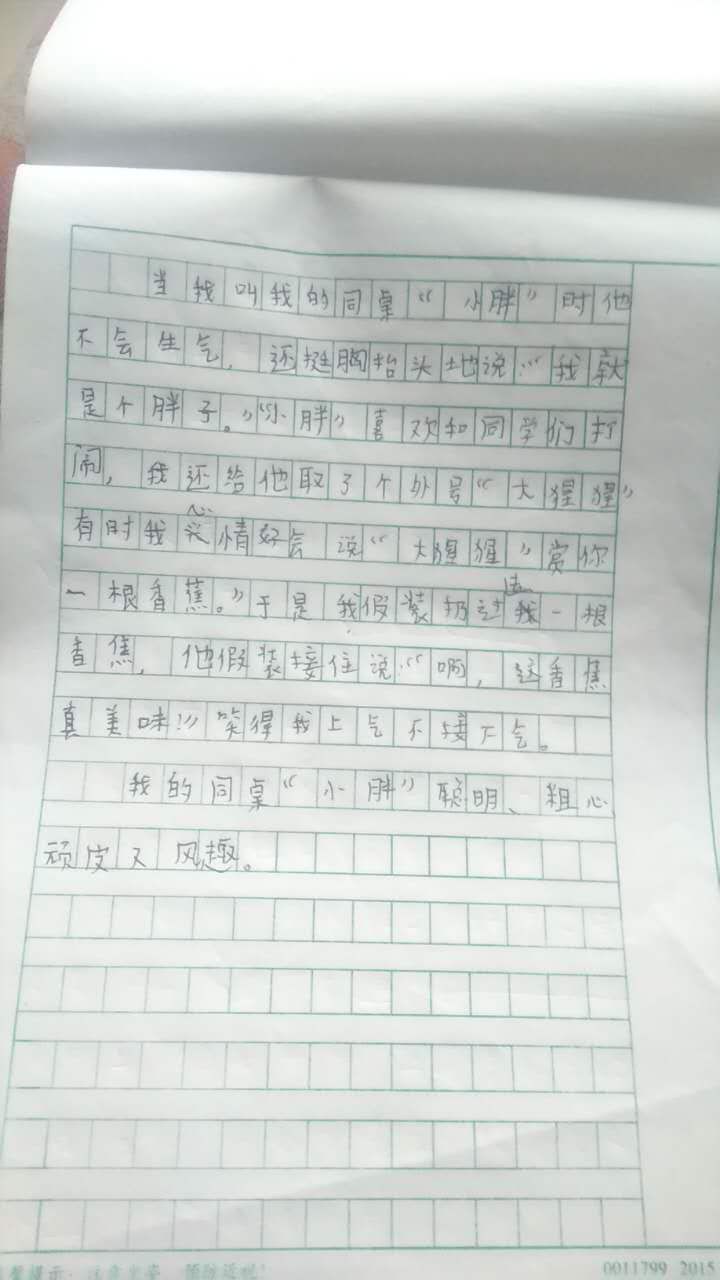 当我叫我的同桌“小胖”时他
不会生气，还挺胸抬头地说：“我就
是个胖子。”“小胖”喜欢和同学们打
闹，我还给他取了个外号“大猩猩”
有时我心情好会说“大猩猩”赏你
一根香蕉。”于是我假装扔过去一根
香蕉，他假装接住说：“啊，这香蕉
真美味！”笑得我上气不接下气。
我的同桌“小胖”聪明、粗心
顽皮又风趣。
0011799 2015